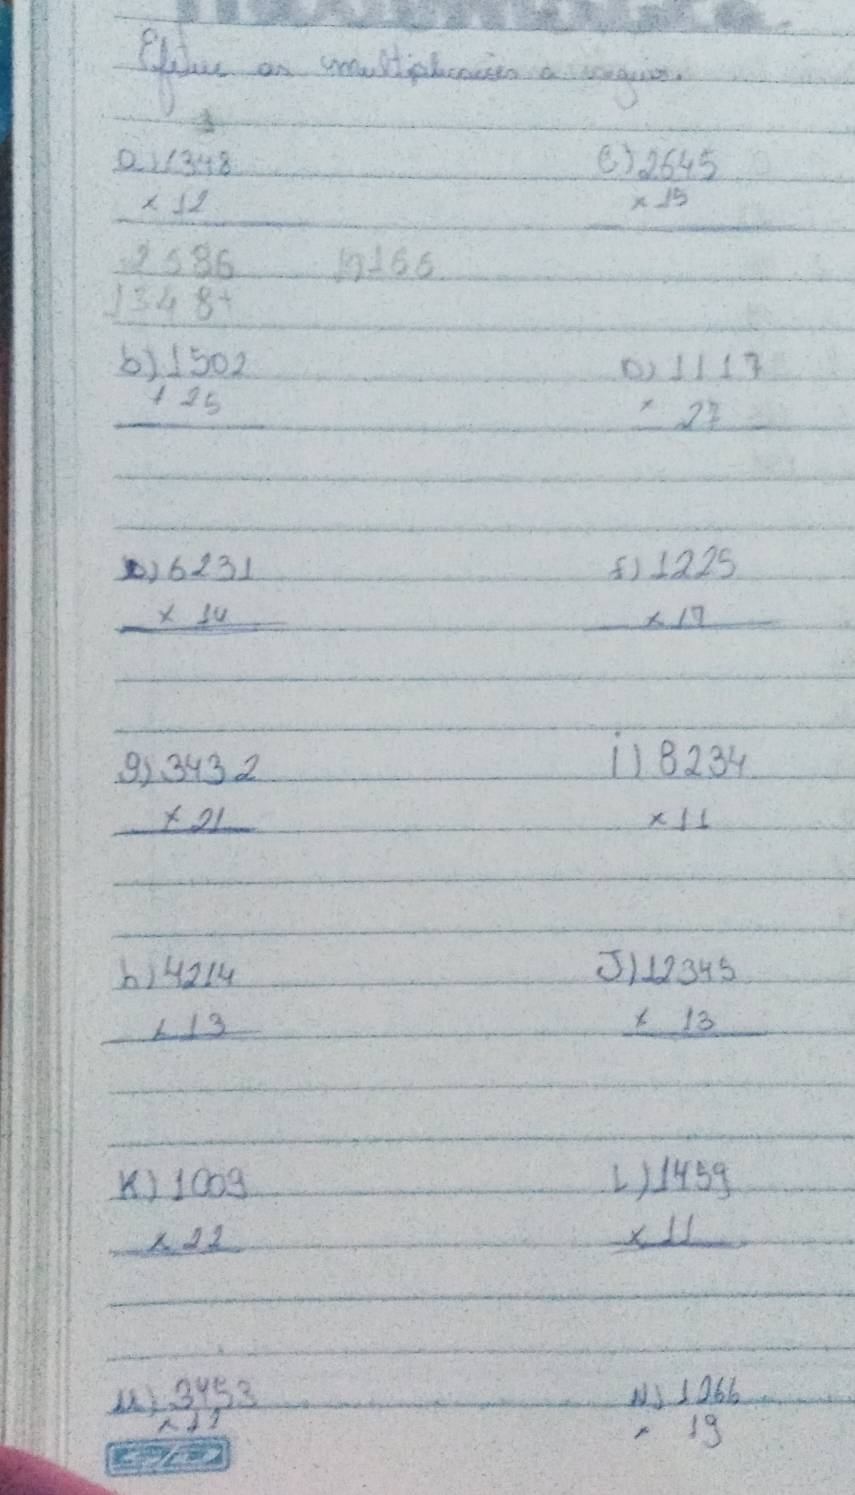 Efetue as multiplicações a seguir.
3
a) 1348
x 12
2586
1348+
17166
c) 2645
x 15
b) 1502
x 25
D) 1117
x 27
e) 6231
x 14
f) 1225
x 17
g) 3432
x 21
i) 8234
x 11
h) 4214
x 13
J) 12345
x 13
K) 1009
x 22
L) 1459
x 11
M) 3453
N) 1266
x 19